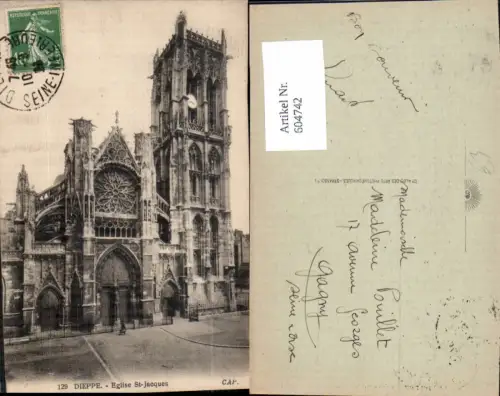 129 DIEPPE. - Eglise St-Jacques
CAP.
SEINE-INF
Artikel Nr.
604742
Bon Souvenir
Mademoiselle
Madeleine Pouillet
17 avenue Georges
Gagny
Seine & Oise